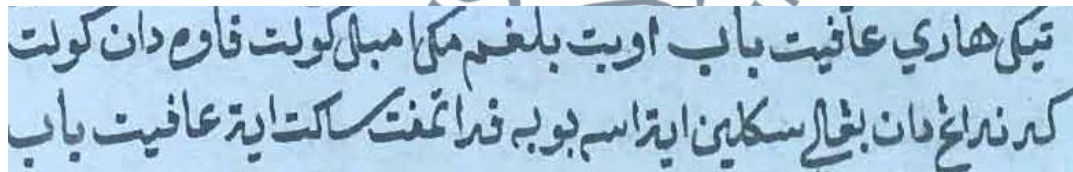 تيݢ هاري عافيت باب اوبت بلغم مک امبل کولت ڤاوه دان کولت
کدندڠ دان بڠالي سکلين ايت اسه بوبه ڤد تمڤت ساکت ايت عافيت باب